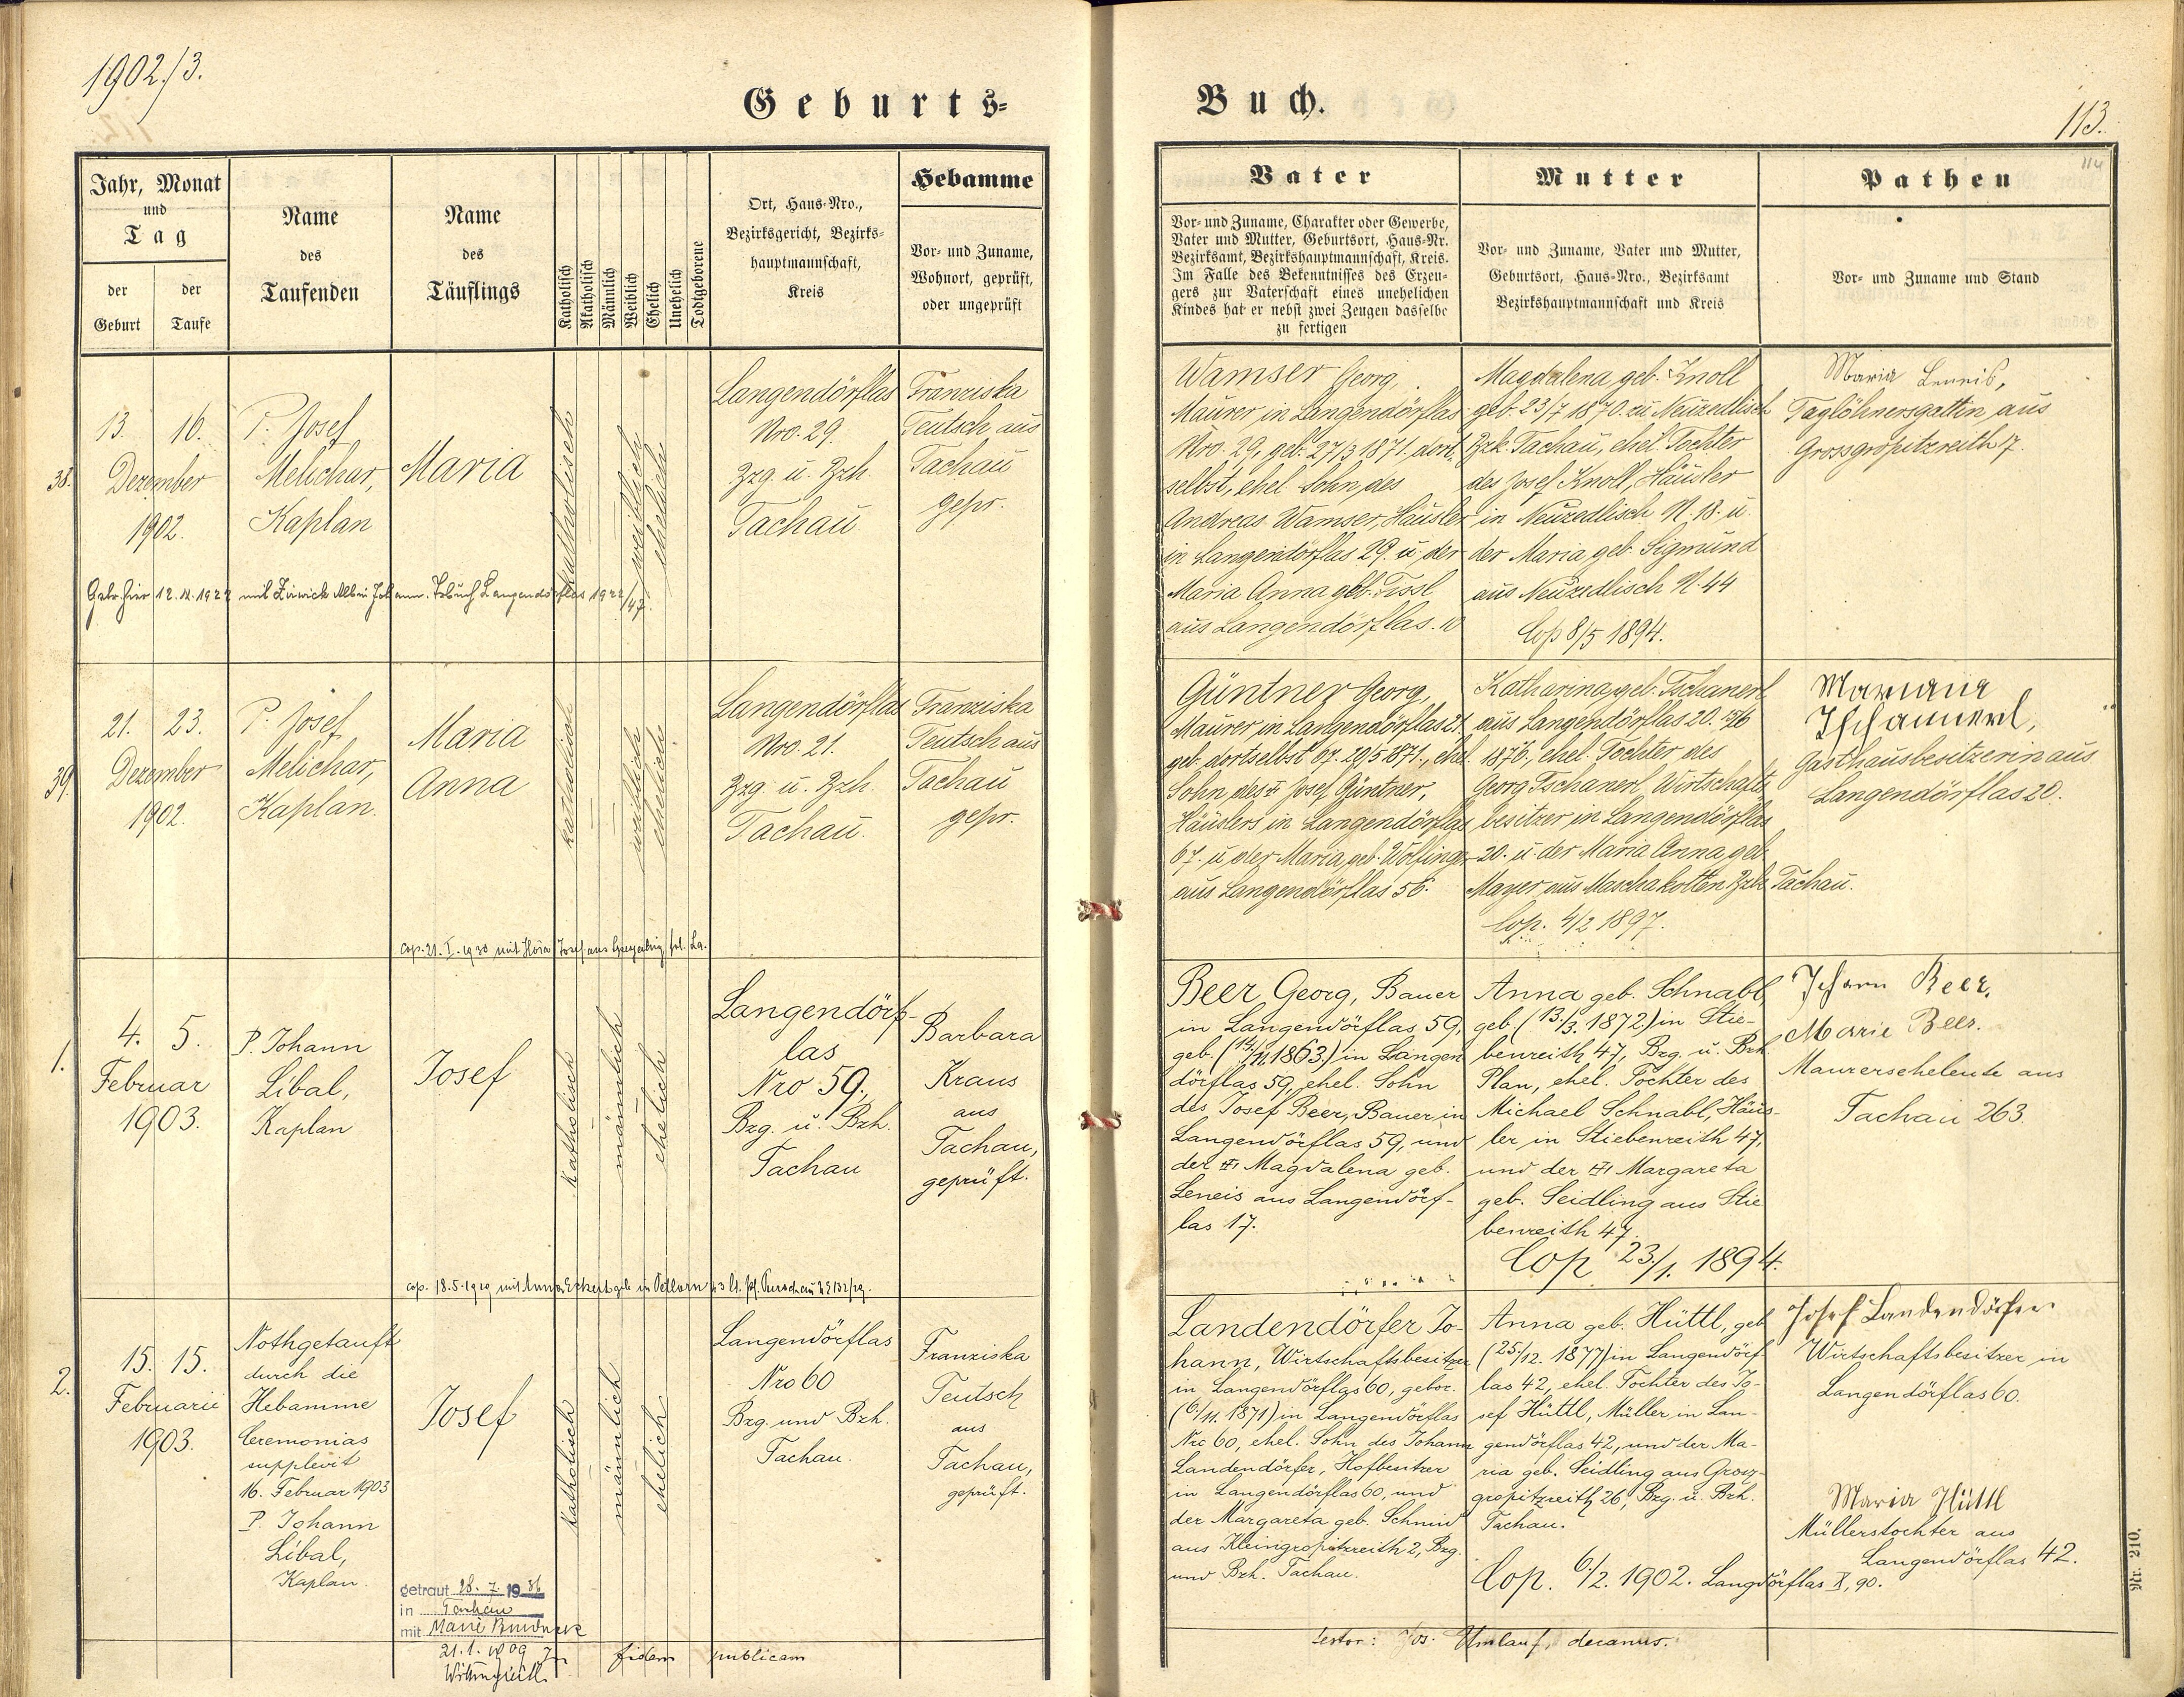 1902./3.
Geburts-
Buch.
113.
114
Jahr, Monat
und
Tag
der
Geburt
der
Taufe
Name
des
Taufenden
Name
des
Täuflings
Katholisch
Akatholisch
Männlich
Weiblich
Ehelich
Unehelich
Todtgeborene
Ort, Haus-Nro.,
Bezirksgericht, Bezirks-
hauptmannschaft,
Kreis
Hebamme
Vor- und Zuname,
Wohnort, geprüft,
oder ungeprüft
Vater
Vor- und Zuname, Charakter oder Gewerbe,
Vater und Mutter, Geburtsort, Haus-Nr.
Bezirksamt, Bezirkshauptmannschaft, Kreis.
Im Falle des Bekenntnisses des Erzeu-
gers zur Vaterschaft eines unehelichen
Kindes hat er nebst zwei Zeugen dasselbe
zu fertigen
Mutter
Vor- und Zuname, Vater und Mutter,
Geburtsort, Haus-Nro., Bezirksamt
Bezirkshauptmannschaft und Kreis
Pathen
Vor- und Zuname und Stand
38.
13. 16.
Dezember
1902.
P. Josef
Melichar,
Kaplan
Maria
katholisch
weiblich
ehelich
Langendörflas
Nro. 29.
Bzg. u. Bzh.
Tachau
Franziska
Teutsch aus
Tachau
gepr.
Wamser Georg,
Maurer in Langendörflas
Nro. 29, geb. 27/3 1871. dort-
selbst, ehel. Sohn des
Andreas Wamser, Häusler
in Langendörflas 29. u. der
Maria Anna geb. Tissl
aus Langendörflas. 10
Magdalena, geb. Knoll
geb. 23/7 1870. zu Neuzedlisch
Bzk. Tachau, ehel. Tochter
des Josef Knoll, Häusler
in Neuzedlisch N. 18. u.
der Maria, geb. Sigmund
aus Neuzedlisch N. 44
Cop 8/5 1894.
Maria Lenneis,
Taglöhnersgattin aus
Grossgropitzreith 7.
Getr. hier 12.11.1922 mit Albin Johann. Trbuch Langendörflas 1922/47.
39.
21. 23.
Dezember
1902.
P. Josef
Melichar,
Kaplan.
Maria
Anna
katholisch
weiblich
ehelich
Langendörflas
Nro. 21.
Bzg. u. Bzh.
Tachau.
Franziska
Teutsch aus
Tachau
gepr.
Güntner Georg,
Maurer in Langendörflas 21.
geb. dortselbst 67. 20/5 1871., ehel.
Sohn des Josef Güntner,
Häuslers in Langendörflas
67. u. der Maria, geb. Wolfinger
aus Langendörflas 56.
Katharina, geb. Tschanerl
aus Langendörflas 20. 15/6
1876., ehel. Tochter des
Georg Tschanerl Wirtschafts
besitzer in Langendörflas
20. u. der Maria Anna geb.
Mayer aus Maschakotten Bzh. Tachau.
Cop. 4/2 1897.
Mariana
Tschannerl,
Gasthausbesitzerin aus
Langendörflas 20.
cop. 21. I. 1930 mit Josef aus
1.
4. 5.
Februar
1903.
P. Johann
Líbal,
Kaplan
Josef
katholisch
männlich
ehelich
Langendörf-
las
Nro 59.,
Bzg. u. Bzh.
Tachau
Barbara
Kraus
aus
Tachau,
geprüft.
Beer Georg, Bauer
in Langendörflas 59,
geb. (14./11. 1863.) in Langen
dörflas 59, ehel. Sohn
des Josef Beer, Bauer in
Langendörflas 59, und
der Magdalena geb.
Leneis aus Langendörf-
las 17.
Anna geb. Schnabl,
geb. (13./3. 1872) in Stie-
benreith 47, Bzg. u. Bzh.
Plan, ehel. Tochter des
Michael Schnabl, Häus-
ler in Stiebenreith 47,
und der Margareta
geb. Seidling aus Stie
benreith 47.
Cop 23./1. 1894.
Johann Beer.
Marie Beer.
Maurerseheleute aus
Tachau 263.
cop. 18.5.1929 mit Anna Eckert geb. in
2.
15. 15.
Februarii
1903.
Nothgetauft
durch die
Hebamme
Ceremonias
supplevit
16. Februar 1903
P. Johann
Líbal,
Kaplan.
Josef
katholisch
männlich
ehelich
Langendörflas
Nro 60
Bzg. und Bzh.
Tachau.
Franziska
Teutsch
aus
Tachau,
geprüft.
Landendörfer Jo-
hann, Wirtschaftsbesitzer
in Langendörflas 60, gebor.
(6./11. 1871) in Langendörflas
Nro 60, ehel. Sohn des Johann
Landendörfer, Hofbesitzer
in Langendörflas 60, und
der Margareta geb. Schmid
aus Kleingropitzreith 2, Bzg.
und Bzh. Tachau.
Anna geb. Hüttl, geb
(25./12. 1877) in Langendörf
las 42, ehel. Tochter des Jo-
sef Hüttl, Müller in Lan-
gendörflas 42, und der Ma-
ria geb. Seidling aus Gross-
gropitzreith 26, Bzg. u. Bzh.
Tachau.
Cop. 6./2. 1902. Langdörflas X, 90.
Josef Landendörfer
Wirtschaftsbesitzer in
Langendörflas 60.
Maria Hüttl
Müllerstochter aus
Langendörflas 42.
getraut 28. 7. 1936
in Tachau
mit Marie
21.1.1909
In fidem publicam
testor: Jos. Umlauf, decanus.
Nr. 210.